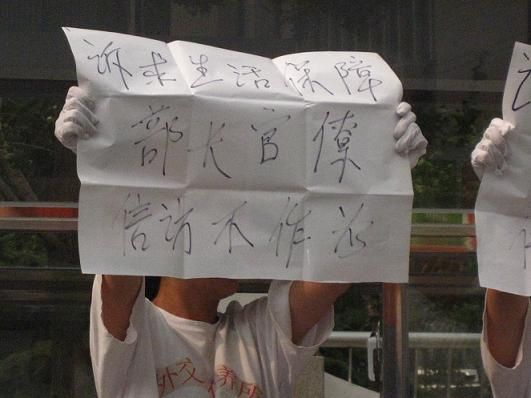 诉求生活保障
部长官僚
信访不作为
外交